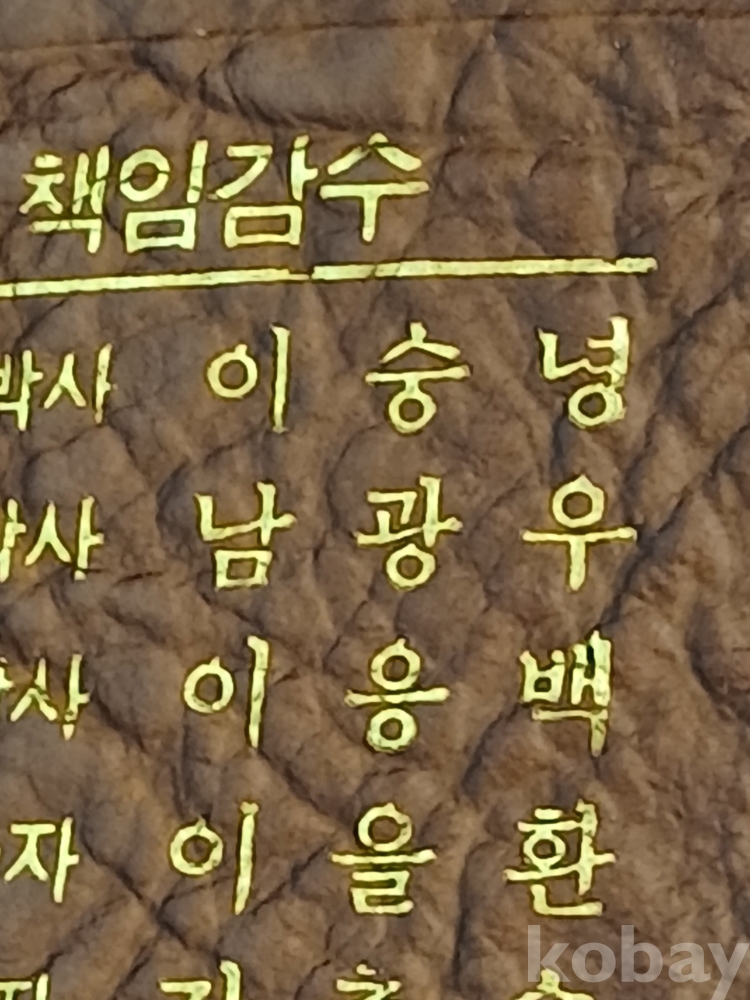 책임감수
박사 이숭녕
박사 남광우
박사 이응백
자 이을환
kobay